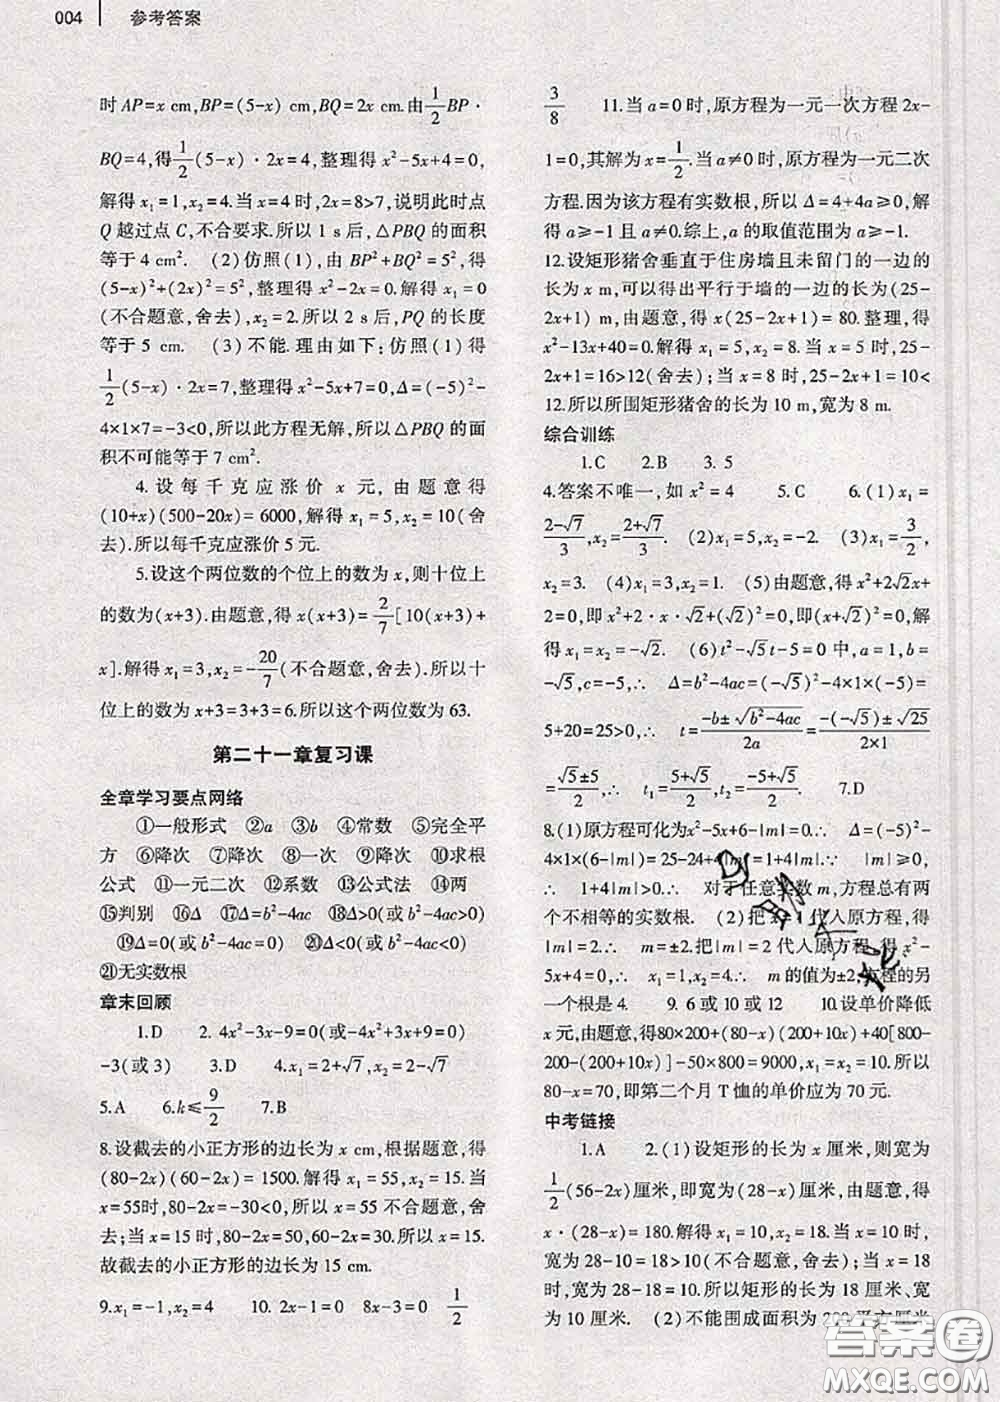 004 参考答案
时 AP=x cm,BP=(5-x) cm,BQ=2x cm.由1/2BP·
BQ=4,得1/2(5-x)·2x=4,整理得 x²-5x+4=0,
解得 x₁=1,x₂=4.当 x=4时,2x=8>7,说明此时点
Q 越过点 C,不合要求.所以 1 s 后,△PBQ 的面积
等于 4 cm². (2)仿照(1),由 BP²+BQ²=5²,得
(5-x)²+(2x)²=5²,整理得 x²-2x=0.解得 x₁=0
(不合题意,舍去),x₂=2.所以 2 s 后,PQ 的长度
等于 5 cm. (3)不能.理由如下:仿照(1)得
1/2(5-x)·2x=7,整理得 x²-5x+7=0,Δ=(-5)²-
4×1×7=-3<0,所以此方程无解,所以△PBQ 的面
积不可能等于 7 cm².
4.设每千克应涨价 x 元,由题意得
(10+x)(500-20x)=6000,解得 x₁=5,x₂=10(舍
去).所以每千克应涨价 5 元.
5.设这个两位数的个位上的数为 x,则十位上
的数为(x+3).由题意,得 x(x+3)=2/7[10(x+3)+
x].解得 x₁=3,x₂=-20/7(不合题意,舍去).所以十
位上的数为 x+3=3+3=6.所以这个两位数为 63.
第二十一章复习课
全章学习要点网络
①一般形式 ②a ③b ④常数 ⑤完全平
方 ⑥降次 ⑦降次 ⑧一次 ⑨降次 ⑩求根
公式 ⑪一元二次 ⑫系数 ⑬公式法 ⑭两
⑮判别 ⑯Δ ⑰Δ=b²-4ac ⑱Δ>0(或 b²-4ac>0)
⑲Δ=0(或 b²-4ac=0) ⑳Δ<0(或 b²-4ac<0)
㉑无实数根
章末回顾
1.D 2.4x²-3x-9=0(或-4x²+3x+9=0)
-3(或 3) 3.D 4.x₁=2+√7,x₂=2-√7
5.A 6.k≤9/2 7.B
8.设截去的小正方形的边长为 x cm,根据题意,得
(80-2x)(60-2x)=1500.解得 x₁=55,x₂=15.当
x=55时,80-2x=-30<0,所以 x=55 不合题意,舍
去;当 x=15 时,80-2x=50,60-2x=30.所以 x=15.
故截去的小正方形的边长为 15 cm.
9.x₁=-1,x₂=4 10.2x-1=0 8x-3=0 1/2
3/8 11.当 a=0 时,原方程为一元一次方程 2x-
1=0,其解为 x=1/2.当 a≠0 时,原方程为一元二次
方程.因为该方程有实数根,所以 Δ=4+4a≥0,解
得 a≥-1 且 a≠0.综上,a 的取值范围为 a≥-1.
12.设矩形猪舍垂直于住房墙且未留门的一边的
长为 x m,可以得出平行于墙的一边的长为(25-
2x+1) m,由题意,得 x(25-2x+1)=80.整理,得
x²-13x+40=0.解得 x₁=5,x₂=8.当 x=5 时,25-
2x+1=16>12(舍去);当 x=8 时,25-2x+1=10<
12.所以所围矩形猪舍的长为 10 m,宽为 8 m.
综合训练
1.C 2.B 3.5
4.答案不唯一,如 x²=4 5.C 6.(1)x₁=
2-√7/3,x₂=2+√7/3. (2)x₁=5,x₂=-2. (3)x₁=3/2,
x₂=3. (4)x₁=3,x₂=1. (5)由题意,得 x²+2√2x+
2=0,即 x²+2·x·√2+(√2)²=0,即(x+√2)²=0,解
得 x₁=x₂=-√2. (6)t²-√5t-5=0 中,a=1,b=
-√5,c=-5,∴ Δ=b²-4ac=(-√5)²-4×1×(-5)=
5+20=25>0,∴ t=-b±√b²-4ac/2a=-(-√5)±√25/2×1
=√5±5/2,∴ t₁=5+√5/2,t₂=-5+√5/2. 7.D
8.(1)原方程可化为x²-5x+6-|m|=0.∴ Δ=(-5)²-
4×1×(6-|m|)=25-24+4|m|=1+4|m|.∵ |m|≥0,
∴ 1+4|m|>0.∴ 对于任意实数 m,方程总有两
个不相等的实数根. (2)把 x=1 代入原方程,得
|m|=2.∴ m=±2.把|m|=2 代入原方程,得 x²-
5x+4=0.∴ x₁=1,x₂=4.∴ m 的值为±2,方程的另
一个根是 4. 9.6 或 10 或 12 10.设单价降低
x 元,由题意,得80×200+(80-x)(200+10x)+40[800-
200-(200+10x)]-50×800=9000,x₁=x₂=10.所以
80-x=70,即第二个月 T 恤的单价应为 70 元.
中考链接
1.A 2.(1)设矩形的长为 x 厘米,则宽为
1/2(56-2x)厘米,即宽为(28-x)厘米,由题意,得
x·(28-x)=180.解得 x₁=10,x₂=18.当 x=10 时,
宽为 28-10=18>10(不合题意,舍去);当 x=18
时,宽为 28-18=10.所以矩形的长为 18 厘米、
宽为 10 厘米. (2)不能围成面积为 200 平方厘米
答案卷
MXQE.COM